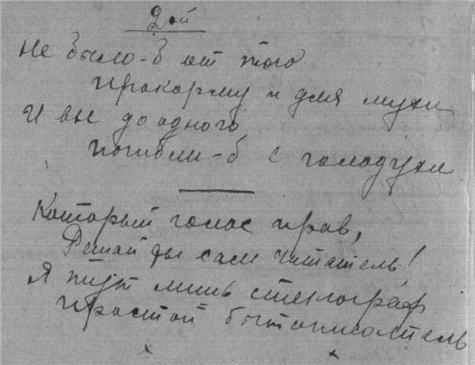 2ой
Не было-б от того
Прокорму и для мухи
И вы до одного
Погибли-б с голодухи
Который голос прав,
Решай ты сам читатель!
Я тут лишь стенограф
Простой бытописатель